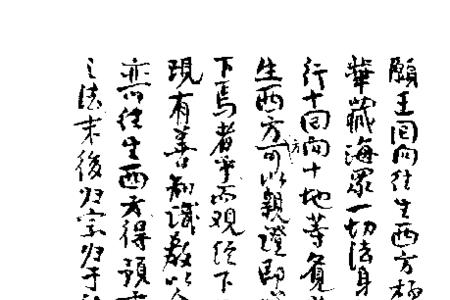 願王回向往生西方極
華藏海眾一切法身
行十回向十地等覺
生西方可以親證即
下焉者乎而觀經下
現有善知識教以
亦以往生西方得預
之法末後归宗归于